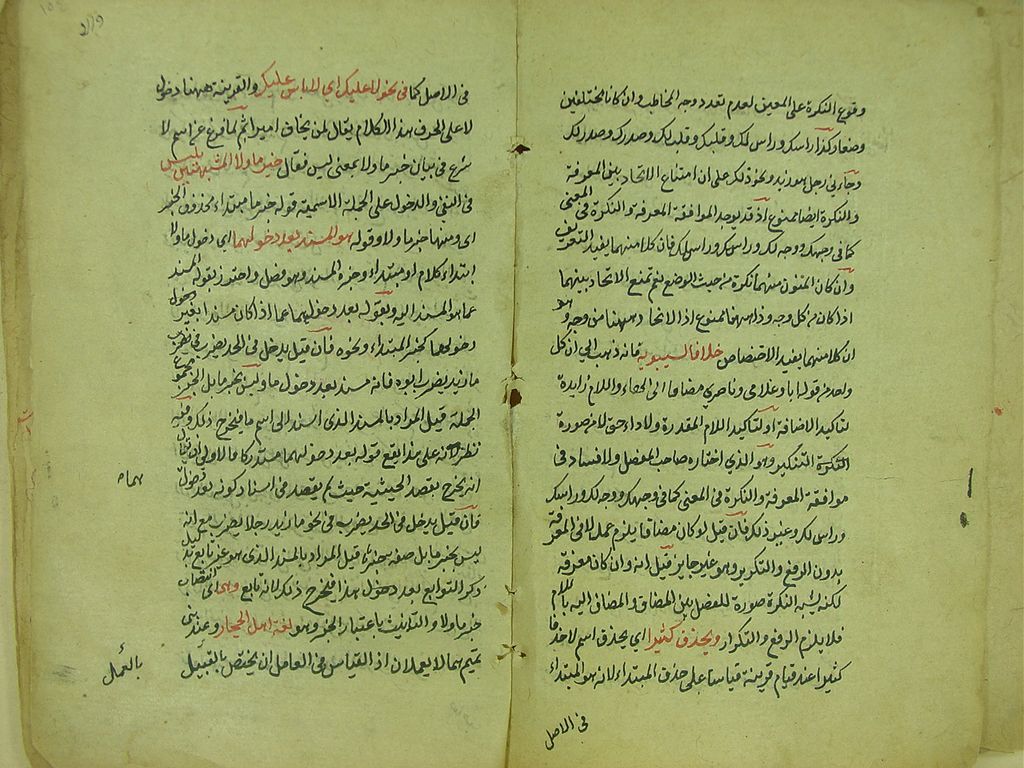 وقوع النكرة على المعين لعدم تعدد وجه المخاطب وان كانا مختلفين
وضعا وكذا راسك وراس لك وقلبك وقلب لك وصدرك وصدر لك
وجاءنى رجل هو زيد ونحو ذلك على ان امتناع الاتحاد بين المعرفة
والنكرة ايضا ممنوع اذ قد يوجد الموافقة المعرفة والنكرة فى المعنى
كما فى وجهك ووجه لك وراسك وراس لك فان كلا منهما يفيد التعريف
وان كان المنون منهما نكرة من حيث الوضع نعم تمنع الاتحاد بينهما
اذا كان من كل وجه وذا ههنا ممنوع اذ الاتحاد ههنا من وجه وهو
ان كلا منهما يفيد الاختصاص خلافا لسيبويه فانه ذهب الى ان كل
واحد من قوله ابا وغلامى وناصرى مضاف الى الهاء واللام زايدة
لتاكيد الاضافة او لتاكيد اللام المقدرة ولاداء حق لا من صورة
النكرة التنكير وهو الذى اختاره صاحب المفصل ولا فساد فى
موافقة المعرفة والنكرة فى المعنى كما فى وجهك ووجه لك وراسك
وراس لك وغير ذلك فان قيل لو كان مضافا يلزم عمل لا فى المعرفة
بدون الرفع والتكرير وهو غير جايز قيل انه وان كان معرفة
لكنه يشبه النكرة صورة للفصل بين المضاف والمضاف اليه باللام
فلا يلزم الرفع والتكرار ويحذف كثيرا اى يحذف اسم لا حذفا
كثيرا عند قيام قرينة قياسا على حذف المبتداء لانه هو المبتداء
فى الاصل
فى الاصل كما فى نحو لا عليك اى لا باس عليك والقرينة ههنا دخول
لا على الحرف هذا الكلام يقال لمن يخاف اميرا ثم لما فرغ عن اسم لا
شرع فى بيان خبر ما ولا بمعنى ليس فقال خبر ما ولا المشبهتين بليس
فى النفى والدخول على الجملة الاسمية قوله خبر ما مبتداء محذوف الخبر
اى ومنها خبر ما ولا وقوله هو المسند بعد دخولهما اى دخول ما ولا
ابتداء كلام او مبتداء وخبره المسند وهو فصل واحترز بقوله المسند
عما هو المسند اليه وبقوله بعد دخولهما عما اذا كان مسندا بغير دخول
دخولهما كخبر المبتداء ونحوه فان قيل يدخل فى الحد يضرب فى نحو
ما زيد يضرب ابوه فانه مسند بعد دخول ما وليس بخبر ما بل الخبر مجموع
الجملة قيل المراد بالمسند الذى اسند الى اسم ما فيخرج ذلك وفيه
نظر لانه على هذا يقع قوله بعد دخولهما مستدركا فالاولى ان يقال
انه يخرج بقصد الحيثية حيث لم يقصد فى اسناد كونه بعد دخول
همامه
فان قيل يدخل فى الحد يضرب فى نحو ما زيد رجلا يضرب مع انه
ليس بخبر ما بل صفة خبره قيل المراد بالمسند الذى هو غير تابع بدليل
ذكر التوابع بعد دخول هذا فيخرج ذلك لانه تابع وهى اى انتصاب
خبر ما ولا والتانيث باعتبار الخبر وهو لغة اهل الحجاز وعند بنى
تميم هما لا يعملان اذ القياس فى العامل ان يختص بالقبيل
بالعمل